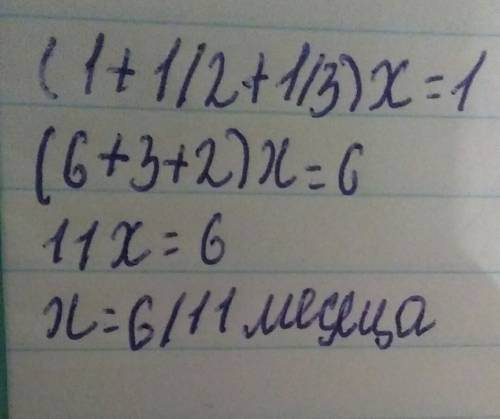 (1+1/2+1/3)x=1
(6+3+2)x=6
11x=6
x=6/11 месяца